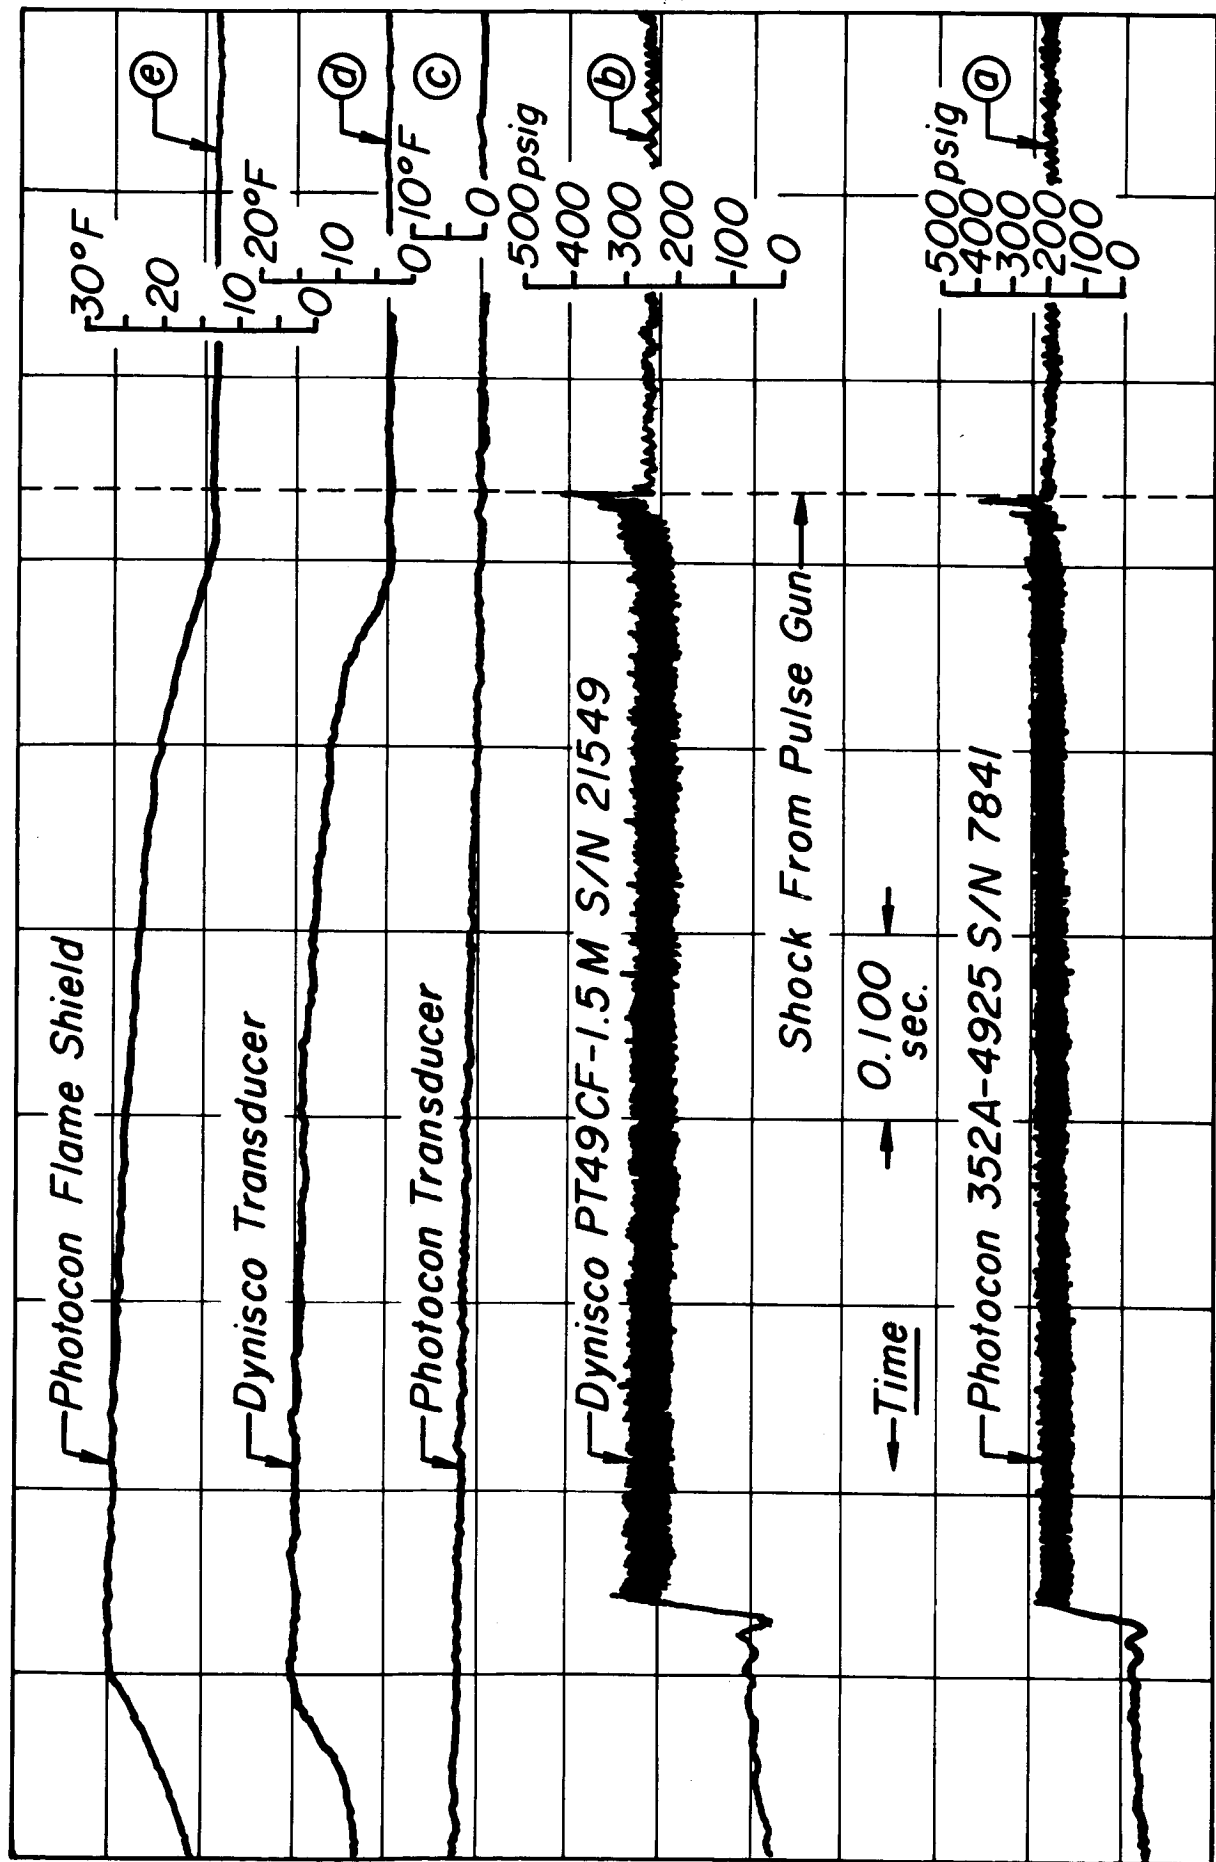 Photocon Flame Shield
30°F
20
10
0
e
Dynisco Transducer
20°F
10
0
d
Photocon Transducer
10°F
0
c
Dynisco PT49CF-1.5M S/N 21549
500 psig
400
300
200
100
0
b
Shock From Pulse Gun
0.100
sec.
Time
Photocon 352A-4925 S/N 7841
500 psig
400
300
200
100
0
a